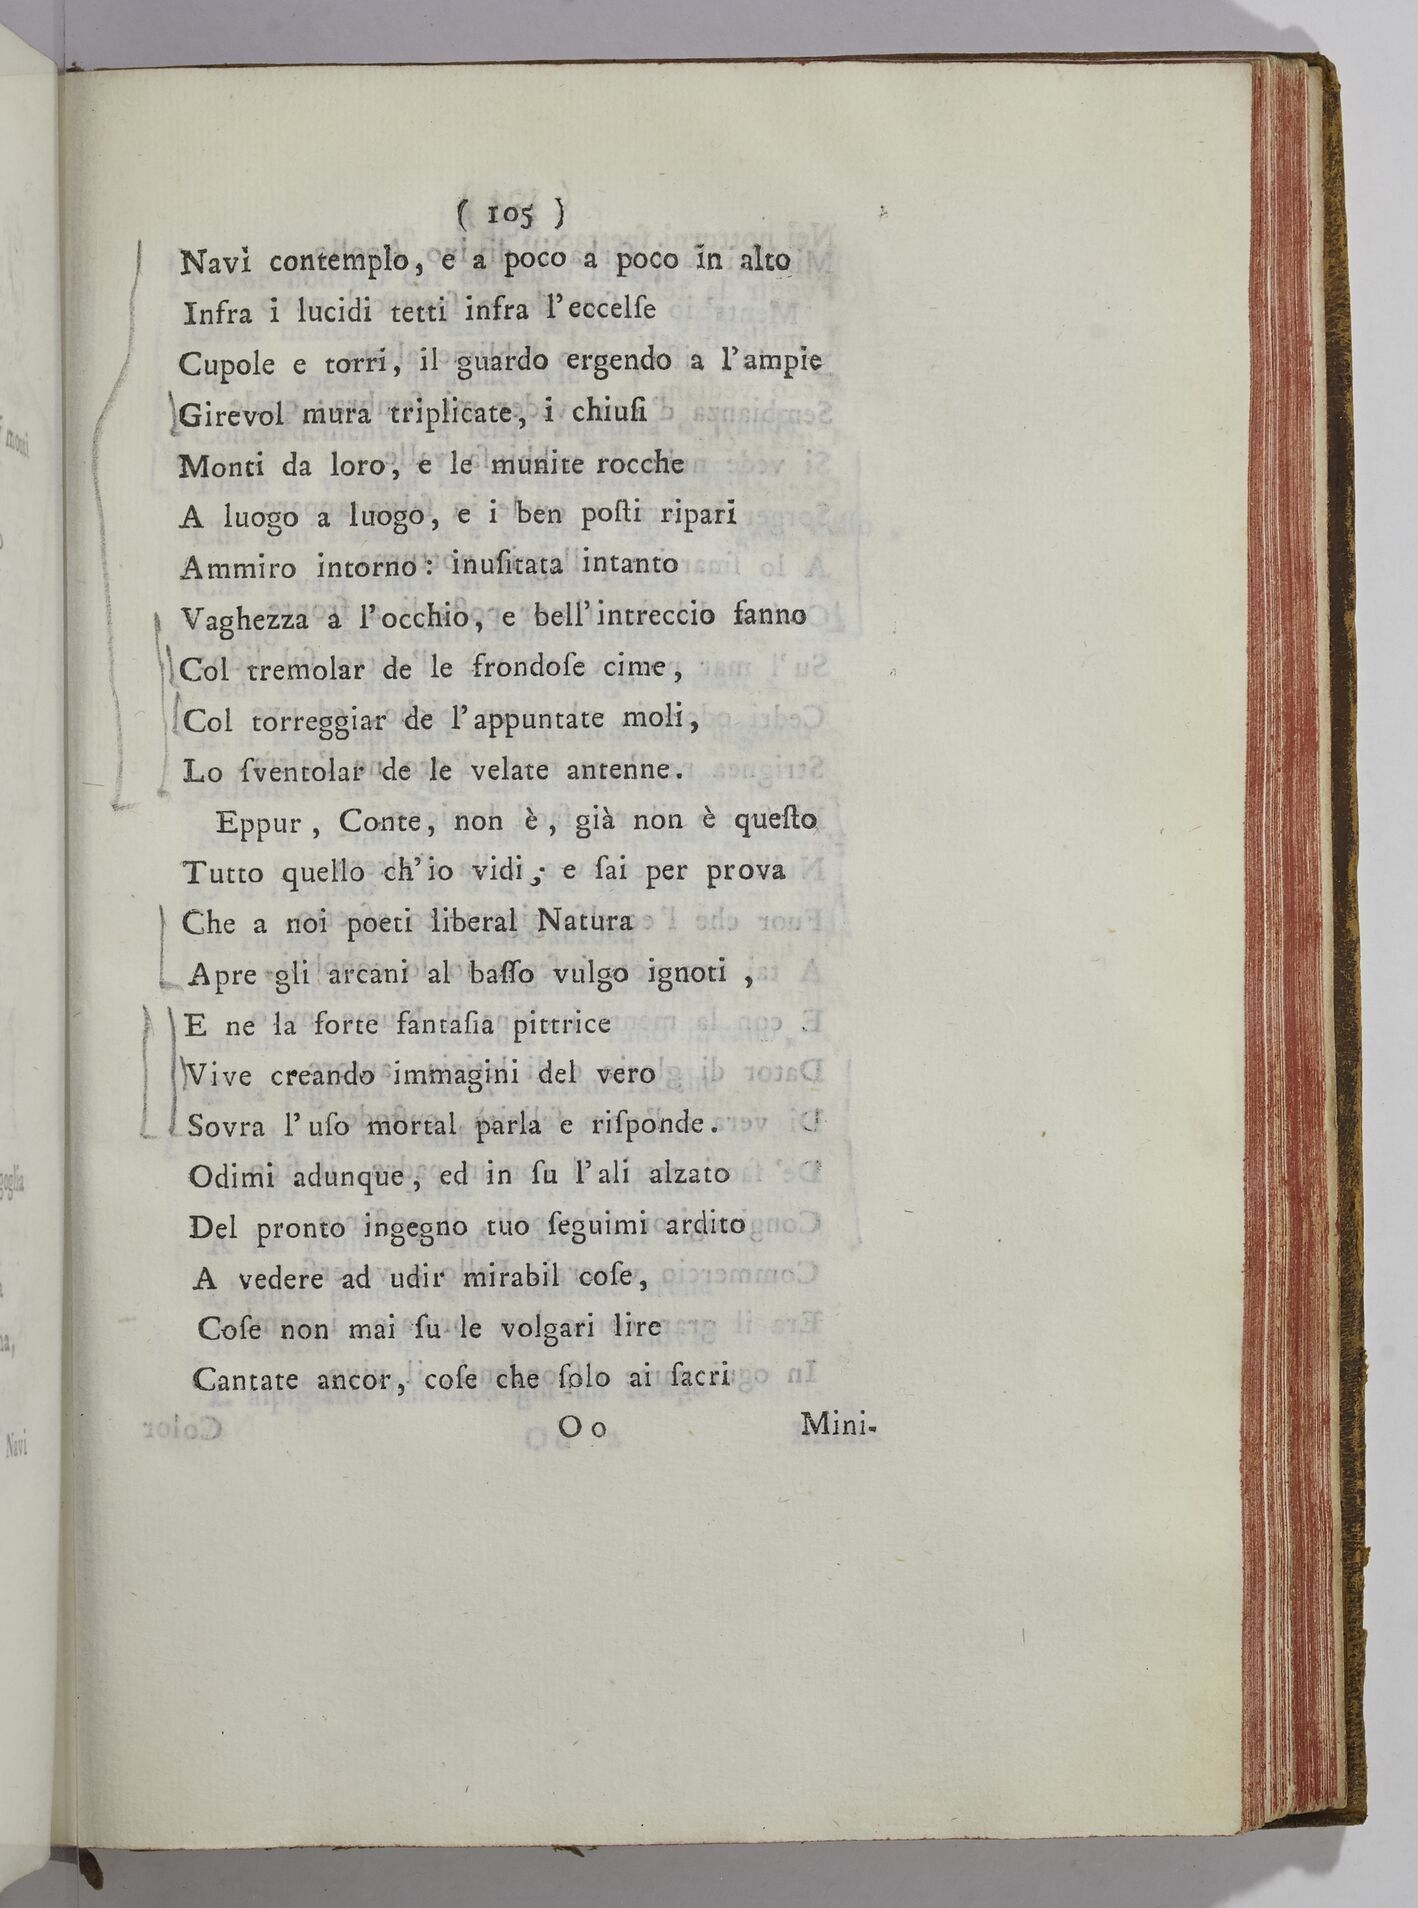 ( 105 )
Navi contemplo, e a poco a poco in alto
Infra i lucidi tetti infra l'eccelſe
Cupole e torri, il guardo ergendo a l'ampie
Girevol mura triplicate, i chiuſi
Monti da loro, e le munite rocche
A luogo a luogo, e i ben poſti ripari
Ammiro intorno: inuſitata intanto
Vaghezza a l'occhio, e bell'intreccio fanno
Col tremolar de le frondoſe cime,
Col torreggiar de l'appuntate moli,
Lo ſventolar de le velate antenne.
Eppur, Conte, non è, già non è queſto
Tutto quello ch'io vidi; e ſai per prova
Che a noi poeti liberal Natura
Apre gli arcani al baſſo vulgo ignoti,
E ne la forte fantaſia pittrice
Vive creando immagini del vero
Sovra l'uſo mortal parla e riſponde.
Odimi adunque, ed in ſu l'ali alzato
Del pronto ingegno tuo ſeguimi ardito
A vedere ad udir mirabil coſe,
Coſe non mai ſu le volgari lire
Cantate ancor, coſe che ſolo ai ſacri
Oo Mini-
Navi